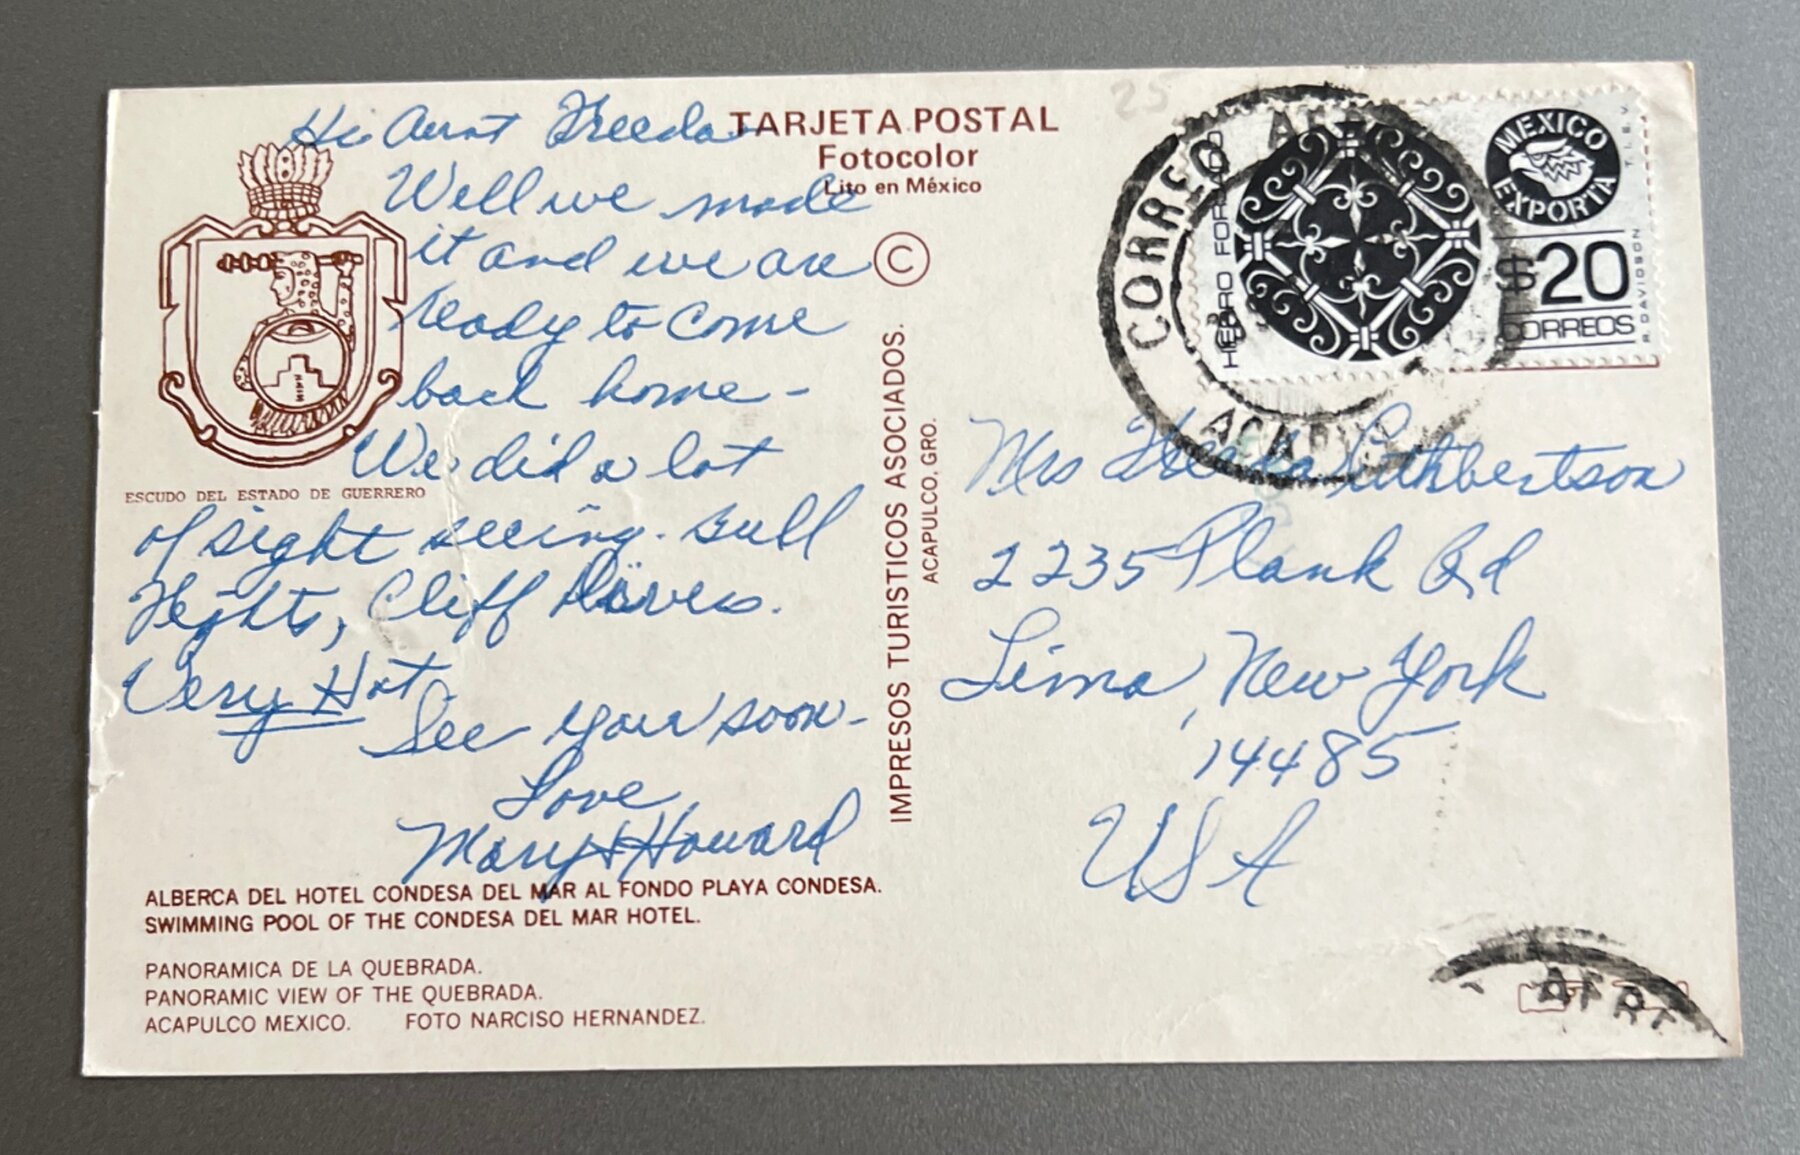 25
Hi Aunt Freeda
Well we made
it and we are
ready to come
back home -
We did a lot
of sight seeing. Bull
Fights, Cliff Divers.
Very Hot.
See you soon -
Love
Mary + Howard
TARJETA POSTAL
Fotocolor
Lito en México
©
ESCUDO DEL ESTADO DE GUERRERO
IMPRESOS TURISTICOS ASOCIADOS.
ACAPULCO, GRO.
ALBERCA DEL HOTEL CONDESA DEL MAR AL FONDO PLAYA CONDESA.
SWIMMING POOL OF THE CONDESA DEL MAR HOTEL.
PANORAMICA DE LA QUEBRADA.
PANORAMIC VIEW OF THE QUEBRADA.
ACAPULCO MEXICO. FOTO NARCISO HERNANDEZ.
CORREO
HIERRO FORJADO
MEXICO
EXPORTA
T.I.E.V.
$20
CORREOS
R. DAVIDSON
Mrs Cuthbertson
2235 Plank Rd
Lima, New York
14485
USA